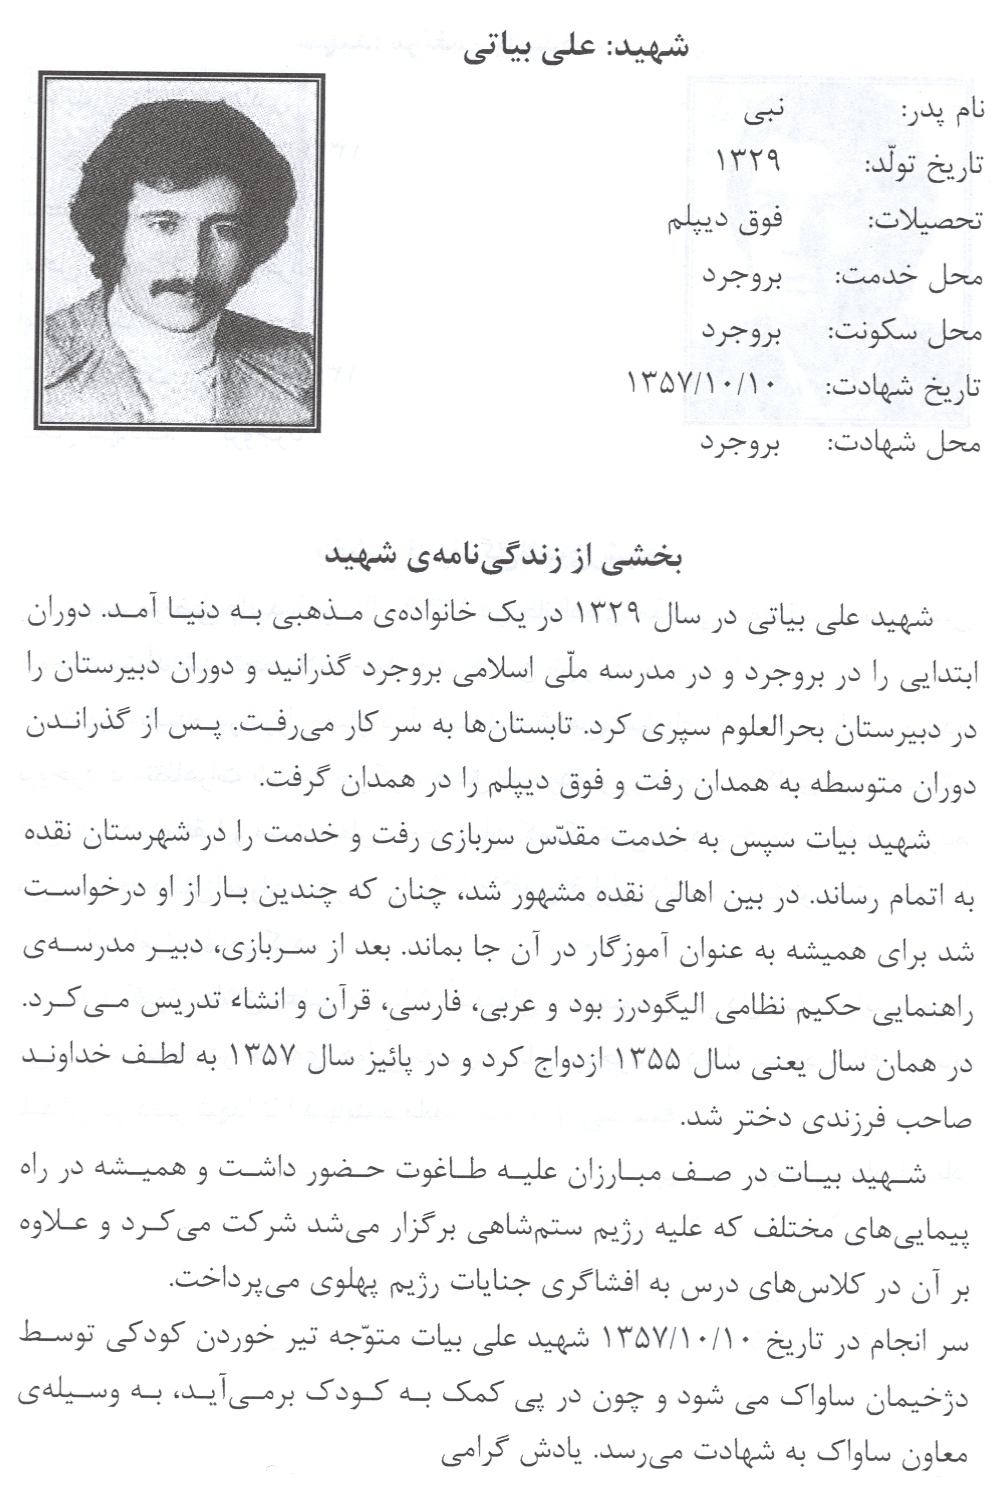 شهید: علی بیاتی
نام پدر: نبی
تاریخ تولّد: ۱۳۲۹
تحصیلات: فوق دیپلم
محل خدمت: بروجرد
محل سکونت: بروجرد
تاریخ شهادت: ۱۳۵۷/۱۰/۱۰
محل شهادت: بروجرد
بخشی از زندگی‌نامه‌ی شهید
شهید علی بیاتی در سال ۱۳۲۹ در یک خانواده‌ی مذهبی به دنیا آمد. دوران
ابتدایی را در بروجرد و در مدرسه ملّی اسلامی بروجرد گذرانید و دوران دبیرستان را
در دبیرستان بحرالعلوم سپری کرد. تابستان‌ها به سر کار می‌رفت. پس از گذراندن
دوران متوسطه به همدان رفت و فوق دیپلم را در همدان گرفت.
شهید بیات سپس به خدمت مقدّس سربازی رفت و خدمت را در شهرستان نقده
به اتمام رساند. در بین اهالی نقده مشهور شد، چنان که چندین بار از او درخواست
شد برای همیشه به عنوان آموزگار در آن جا بماند. بعد از سربازی، دبیر مدرسه‌ی
راهنمایی حکیم نظامی الیگودرز بود و عربی، فارسی، قرآن و انشاء تدریس می‌کرد.
در همان سال یعنی سال ۱۳۵۵ ازدواج کرد و در پائیز سال ۱۳۵۷ به لطف خداوند
صاحب فرزندی دختر شد.
شهید بیات در صف مبارزان علیه طاغوت حضور داشت و همیشه در راه
پیمایی‌های مختلف که علیه رژیم ستم‌شاهی برگزار می‌شد شرکت می‌کرد و علاوه
بر آن در کلاس‌های درس به افشاگری جنایات رژیم پهلوی می‌پرداخت.
سر انجام در تاریخ ۱۳۵۷/۱۰/۱۰ شهید علی بیات متوّجه تیر خوردن کودکی توسط
دژخیمان ساواک می شود و چون در پی کمک به کودک برمی‌آید، به وسیله‌ی
معاون ساواک به شهادت می‌رسد. یادش گرامی